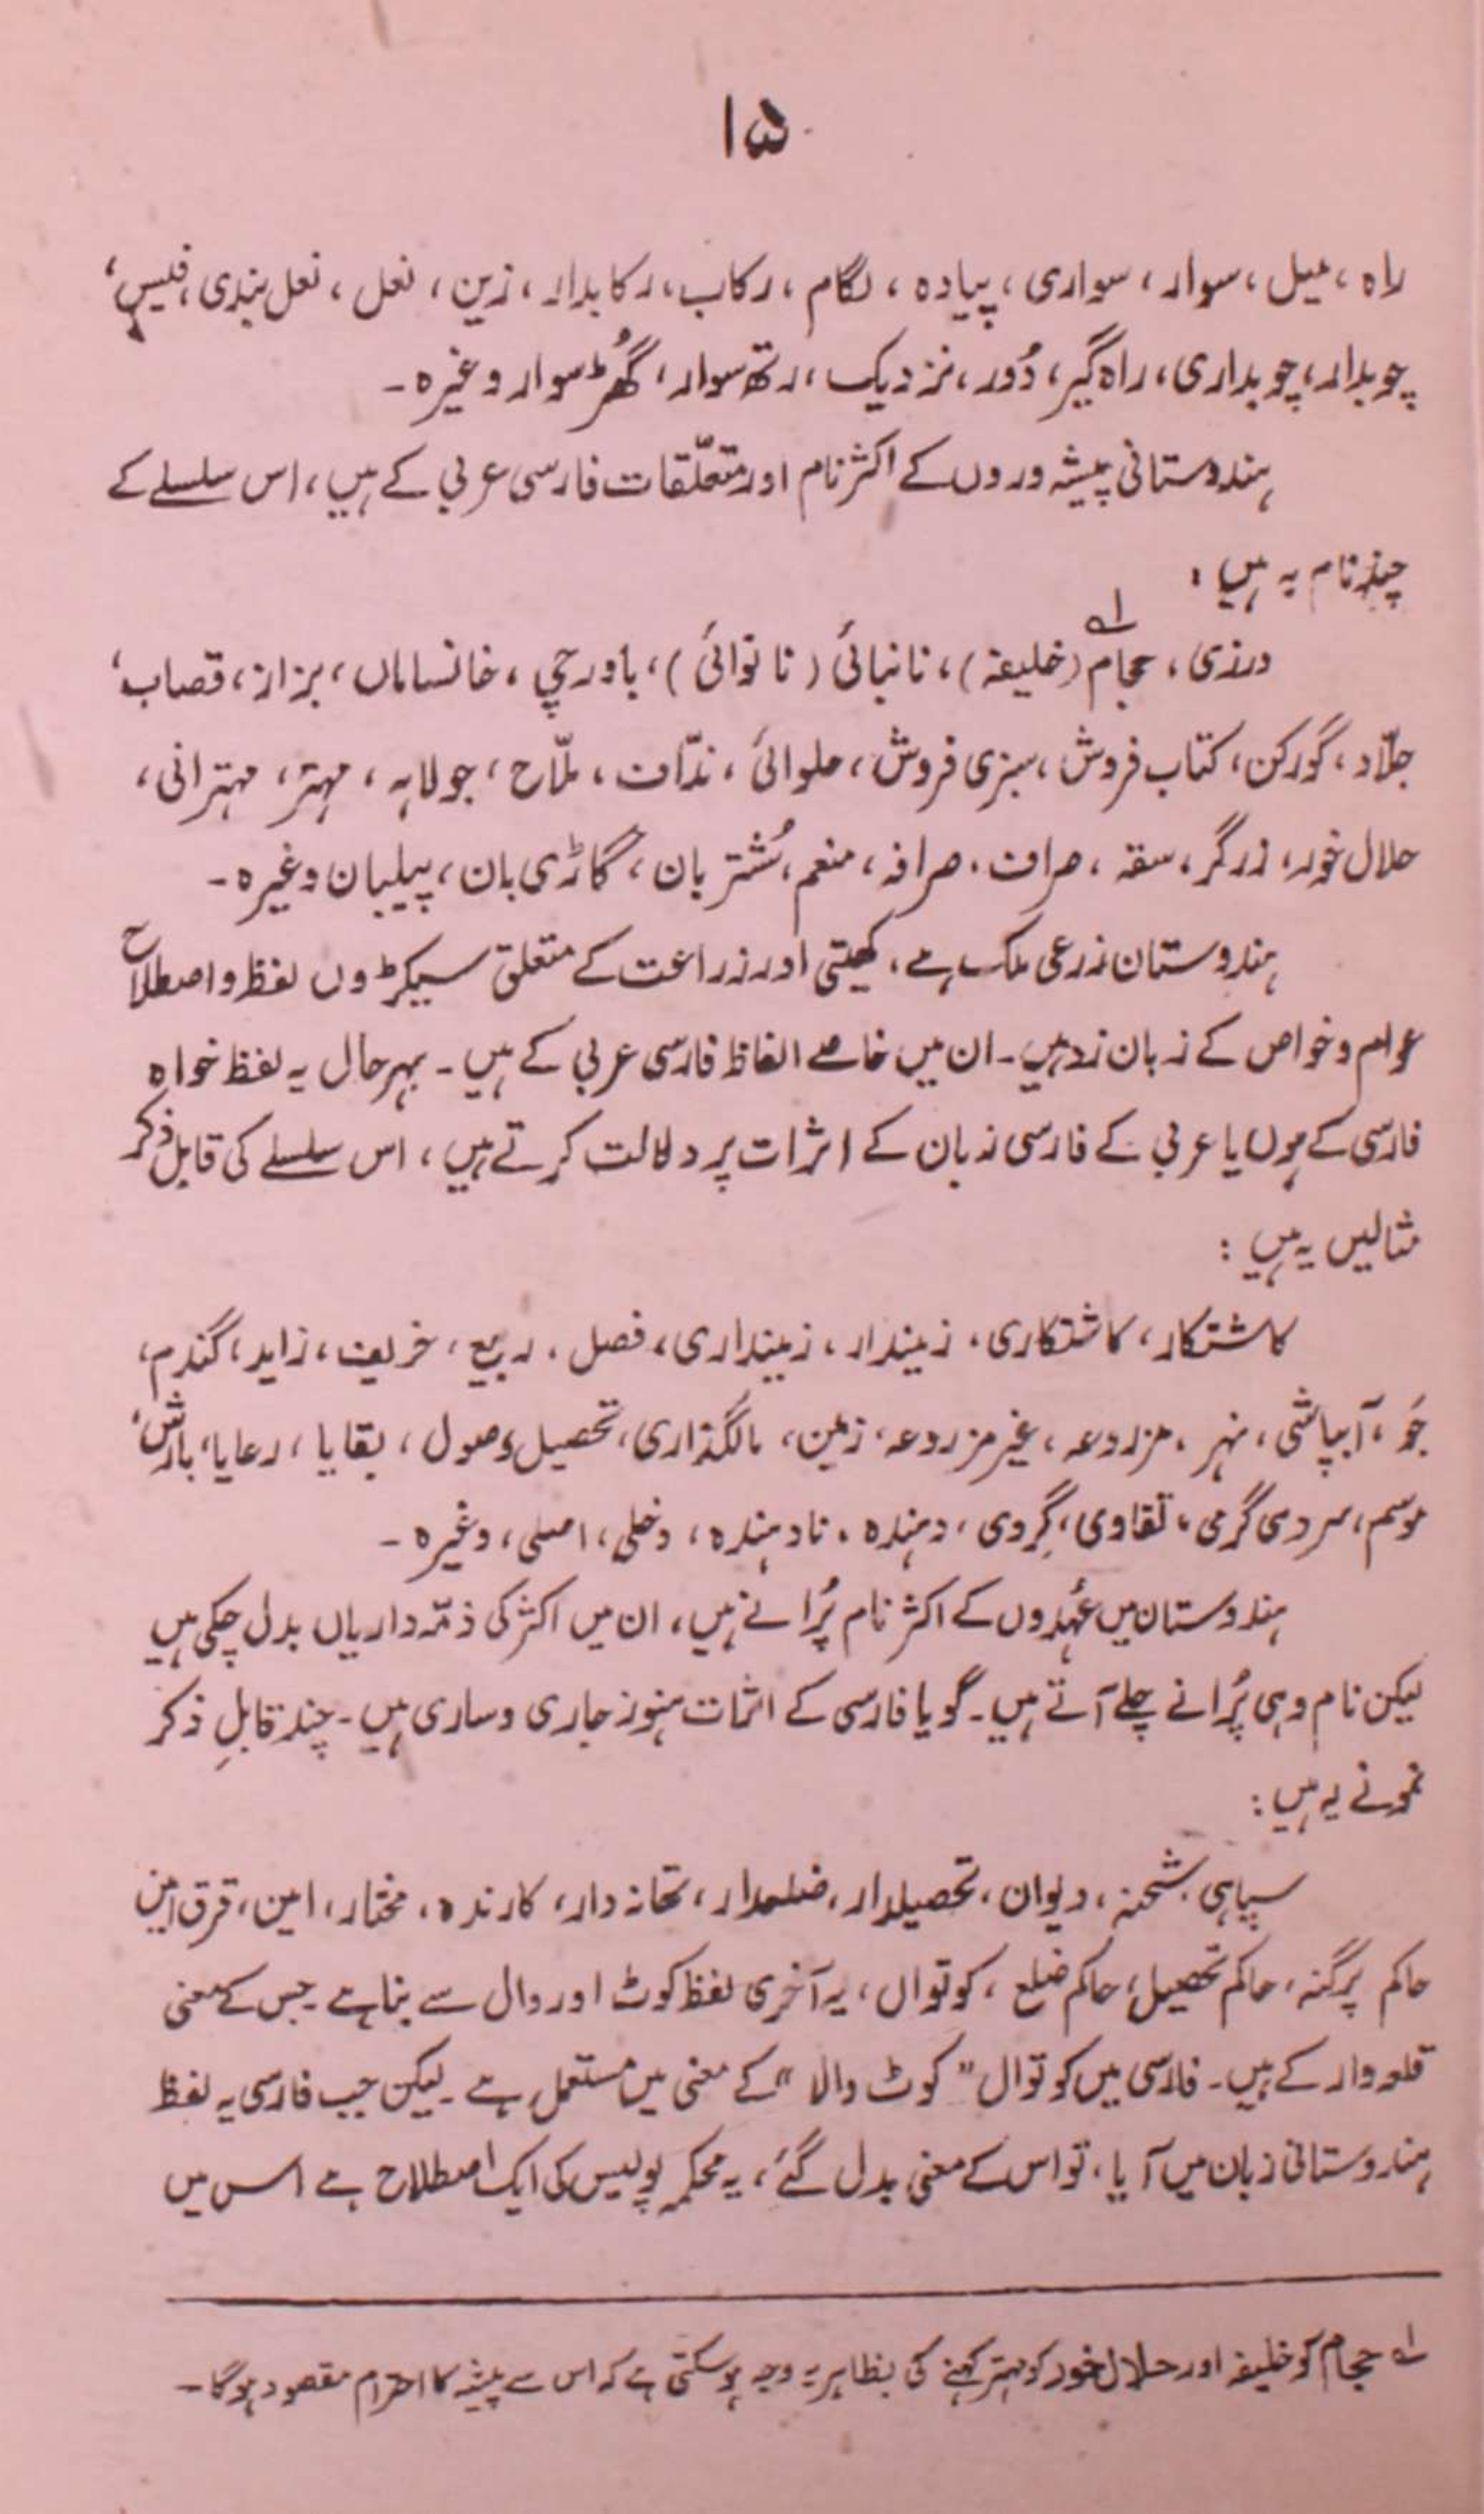 ۱۵
راہ، میل، سوار، سواری، پیادہ، لگام، رکاب، رکابدار، زین، نعل، نعل بندی، فلیس،
چوبدار، چوبداری، راہ گیر، دُور، نزدیک، رتھ سوار، گھُڑ سوار وغیرہ۔
ہندوستانی پیشہ وروں کے اکثر نام اور متعلّقات فارسی عربی کے ہیں، اس سلسلے کے
چند نام یہ ہیں:
درزی، حجام۱؎ (خلیفہ)، نانبائی (نانوائی)، باورچی، خانساماں، بزاز، قصاب،
جلّاد، گورکن، کتاب فروش، سبزی فروش، حلوائی، ندّاف، ملّاح، جولاہہ، مہتر، مہترانی،
حلال خور، زرگر، سقہ، صراف، صرافہ، منعم، شُتربان، گاڑی بان، پیلبان وغیرہ۔
ہندوستان زرعی ملک ہے، کھیتی اور زراعت کے متعلق سیکڑوں لفظ و اصطلاح
عوام و خواص کے زبان زد ہیں۔ ان میں خاصے الفاظ فارسی عربی کے ہیں۔ بہرحال یہ لفظ خواہ
فارسی کے ہوں یا عربی کے فارسی زبان کے اثرات پر دلالت کرتے ہیں، اس سلسلے کی قابل ذکر
مثالیں یہ ہیں:
کاشتکار، کاشتکاری، زمیندار، زمینداری، فصل، ربیع، خریف، زاید، گندم،
جَو، آبپاشی، نہر، مزروعہ، غیر مزروعہ، زمین، مالگذاری، تحصیل وصول، بقایا، رعایا، بارش،
موسم، سردی گرمی، تقاوی، گِروی، دہندہ، نادہندہ، دخلی، اصلی، وغیرہ۔
ہندوستان میں عُہدوں کے اکثر نام پُرانے ہیں، ان میں اکثر کی ذمّہ داریاں بدل چکی ہیں
لیکن نام وہی پُرانے چلے آتے ہیں۔ گویا فارسی کے اثرات ہنوز جاری و ساری ہیں۔ چند قابلِ ذکر
نمونے یہ ہیں:
سپاہی، شحنہ، دیوان، تحصیلدار، ضلعدار، تھانہ دار، کارندہ، مختار، امین، قرق امین
حاکم پرگنہ، حاکم تحصیل، حاکم ضلع، کوتوال، یہ آخری لفظ کوٹ اور وال سے بنا ہے جس کے معنی
قلعہ دار کے ہیں۔ فارسی میں کوتوال "کوٹ والا" کے معنی میں مستعمل ہے۔ لیکن جب فارسی یہ لفظ
ہندوستانی زبان میں آیا، تو اس کے معنی بدل گئے، یہ محکمہ پولیس کی ایک اصطلاح ہے اس میں
۱؎ حجام کو خلیفہ اور حلال خور کو مہتر کہنے کی بظاہر یہ وجہ ہوسکتی ہے کہ اس سے پیشہ کا احترام مقصود ہوگا۔